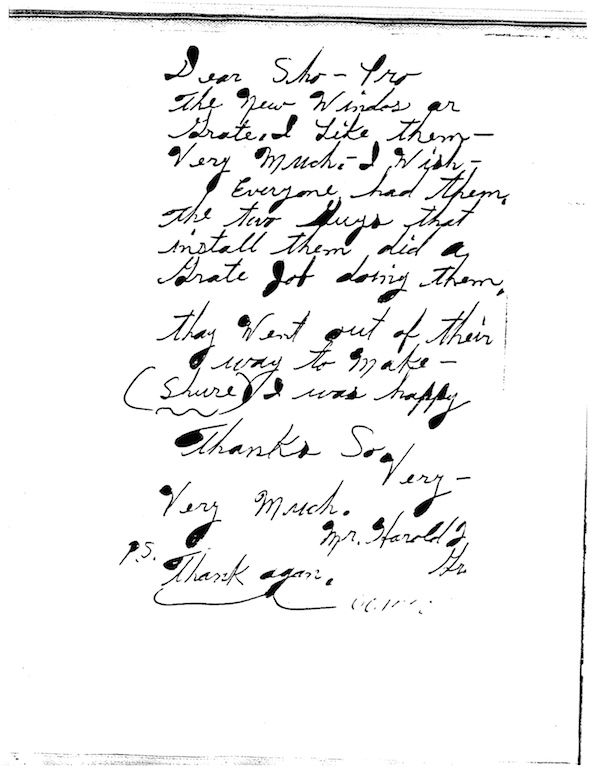 Dear Sho-Pro
The New Windos ar
Grate, I Like them-
Very Much.-I Wish-
Everyone had them.
The two guys that
install them did a
Grate Job doing them.
thay Went out of their
way to Make-
(Shure) I was happy
Thanks So Very-
Very Much.
Mr. Harold
P.S.
Thank agan.